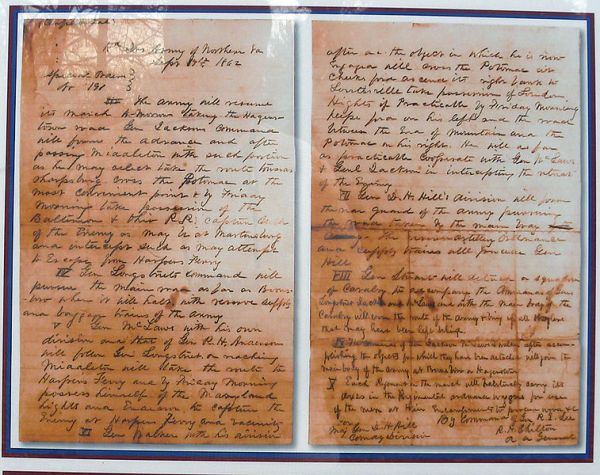 (Confidential)
Hd Qrs Army of Northern Va
Sept 9th 1862
Special Orders
No 191
III The Army will resume
its march to-morrow taking the Hagers-
town road Gen Jacksons Command
will form the advance and after
passing Middleton with such portion
as he may select take the route towards
Sharpsburg cross the Potomac at the
most convenient point & by Friday
Morning take possession of the
Baltimore & Ohio R.R. capture such
of the Enemy as may be at Martinsburg
and intercept such as may attempt
to Escape from Harpers Ferry
IV Gen Longstreets command will
pursue the main road as far as Boons-
boro where it will halt, with reserve supply
and baggage trains of the Army
V Gen McLaws with his own
division and that of Gen R. H. Anderson
will follow Gen Longstreet on reaching
Middleton will take the route to
Harpers Ferry and by Friday Morning
possess himself of the Maryland
heights and Endeavor to capture the
Enemy at Harpers Ferry and vicinity
VI Gen Walker with his division
after accomplishing the object in which he is now
Engaged will cross the Potomac at
Cheeks ford ascend its right bank to
Lovettsville take possession of Loudon
Heights if Practicable by Friday Morning
Keyes ford on his left and the road
between the End of mountain and the
Potomac on his right. He will as far
as practicable cooperate with Gen McLaws
& Genl Jackson in intercepting the retreat
of the Enemy
VII Gen D. H. Hill's division will form
the rear guard of the army pursuing
the road taken by the main body
The reserve artillery Ordnance
and supply trains will precede Gen
Hill
VIII Gen Stuart will detach a squadron
of Cavalry to accompany the Commands of Gen
Longstreet Jackson and McLaws and with the main body of the
Cavalry will cover the route of the Army & bring up all stragglers
that may have been left behind
IX The commands of Gen Jackson McLaws & Walker after accom-
plishing the objects for which they have been detached will join the
main body of the army at Boonsboro or Hagerstown
X Each Regiment on the march will habitually carry its
axes in the Regimental ordnance wagons for use
of the men at their Encampments to procure wood &c
By command of Gen R. E. Lee
R. H. Chilton
A. A. General
For
Maj Gen D. H. Hill
Comdg Division